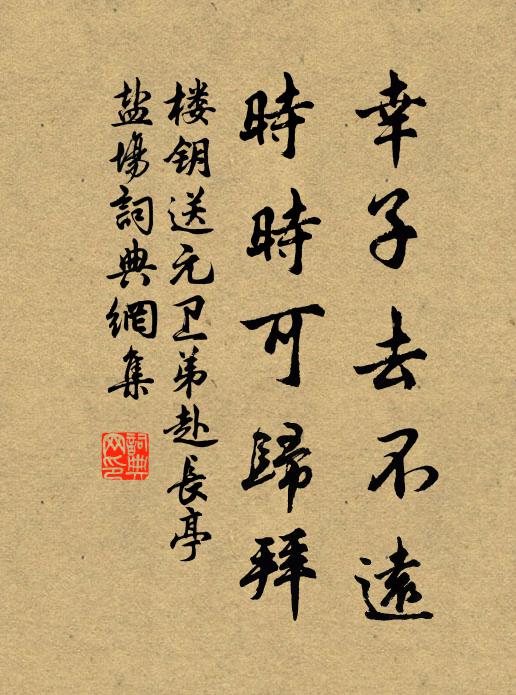 幸子去不遠
時時可歸拜
楼钥送元卫弟赴長亭
盐場詞典網集
詞典网印